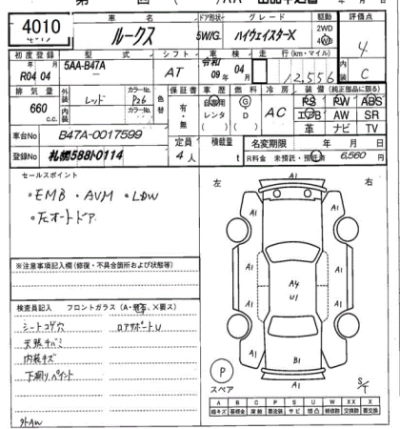 4010
車名
ルークス
ドア形状
5W/G
グレード
ハイウェイスターX
駆動
2WD
4WD
評価点
4
内
C
初度登録
R04 04
年 月
型式
5AA-B47A
シフト
AT
車検
令和
09年 04月
走行(km・マイル)
12,556
排気量
660
c.c.
外装
内装
レッド
カラーNo.
P26
カラーNo.
色替
保証書
有・無
車歴
自家用
レンタ
( )
燃料
G
D
( )
冷房
AC
装備(純正部品に限る)
PS PW ABS
エアB AW SR
革 ナビ TV
車台No
B47A-0017599
登録No
札幌588ト0114
定員
4人
積載量
t
名変期限
年 月 日
R料金 未預託・預託済
6,560円
セールスポイント
・EMB ・AVM ・LDW
・左オートドア
※注意事項記入欄(修復・不具合箇所および状態等)
検査員記入 フロントガラス(A・飛石、X要ス)
シートコゲ穴
ロアサポートU
天張キバミ
内装キズ
下廻りペイント
外AW
左
右
A1
A1
A1
A1
A1
A1
A4
U1
B1
A1
P
スペア
S/T